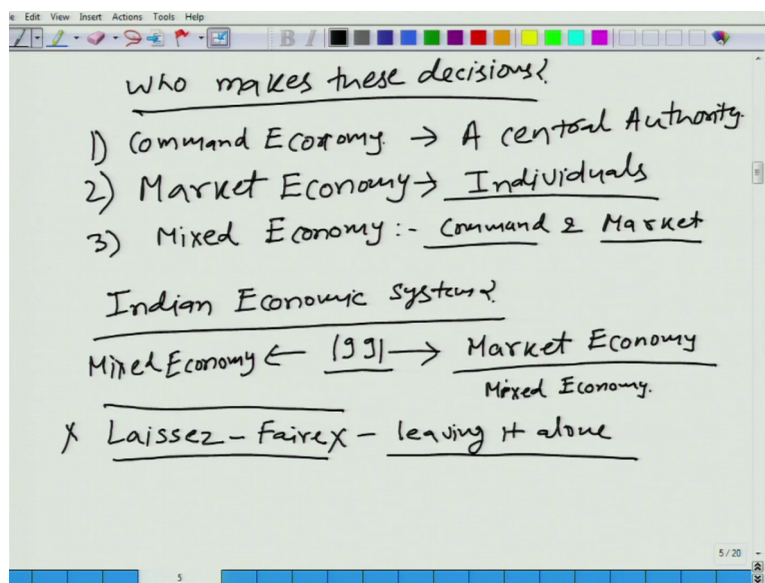 Edit View Insert Actions Tools Help
B I
Who makes these decisions?
1) Command Economy. → A central Authority.
2) Market Economy → Individuals
3) Mixed Economy :- Command & Market
Indian Economic system?
Mixed Economy ← 1991 → Market Economy
Mixed Economy.
x Laissez - Faire x - leaving it alone
5 / 20
5